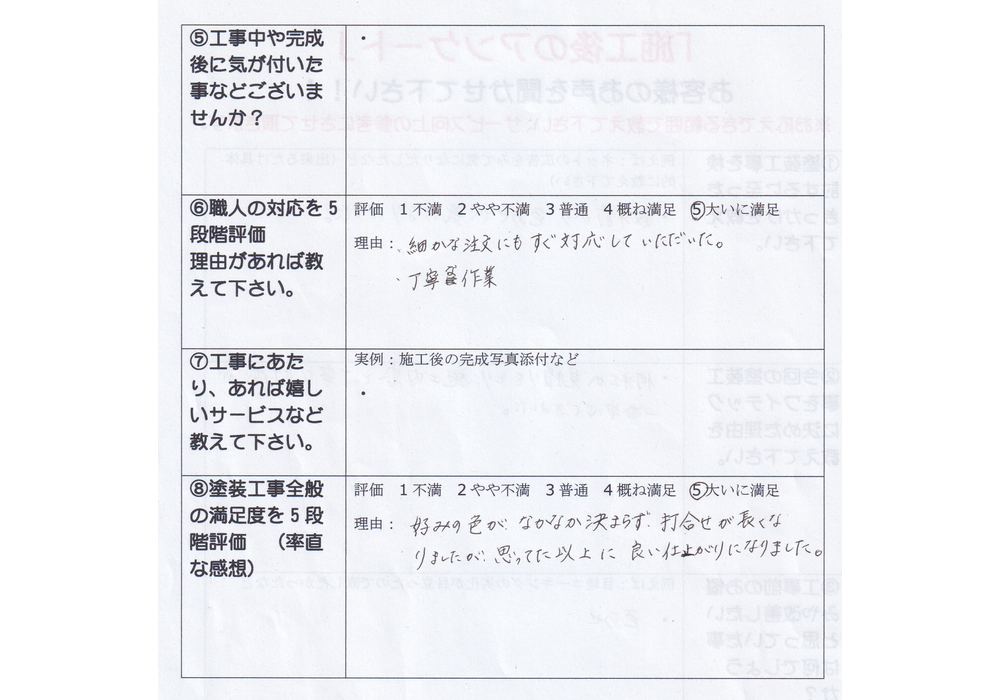 ⑤工事中や完成
後に気が付いた
事などございま
せんか？
・
⑥職人の対応を5
段階評価
理由があれば教
えて下さい。
評価　1不満　2やや不満　3普通　4概ね満足　⑤大いに満足
理由：・細かな注文にもすぐ対応していただいた。
・丁寧な作業
⑦工事にあた
り、あれば嬉し
いサービスなど
教えて下さい。
実例：施工後の完成写真添付など
・
⑧塗装工事全般
の満足度を5段
階評価　（率直
な感想）
評価　1不満　2やや不満　3普通　4概ね満足　⑤大いに満足
理由：　好みの色が、なかなか決まらず、打合せが長くな
りましたが、思ってた以上に良い仕上がりになりました。